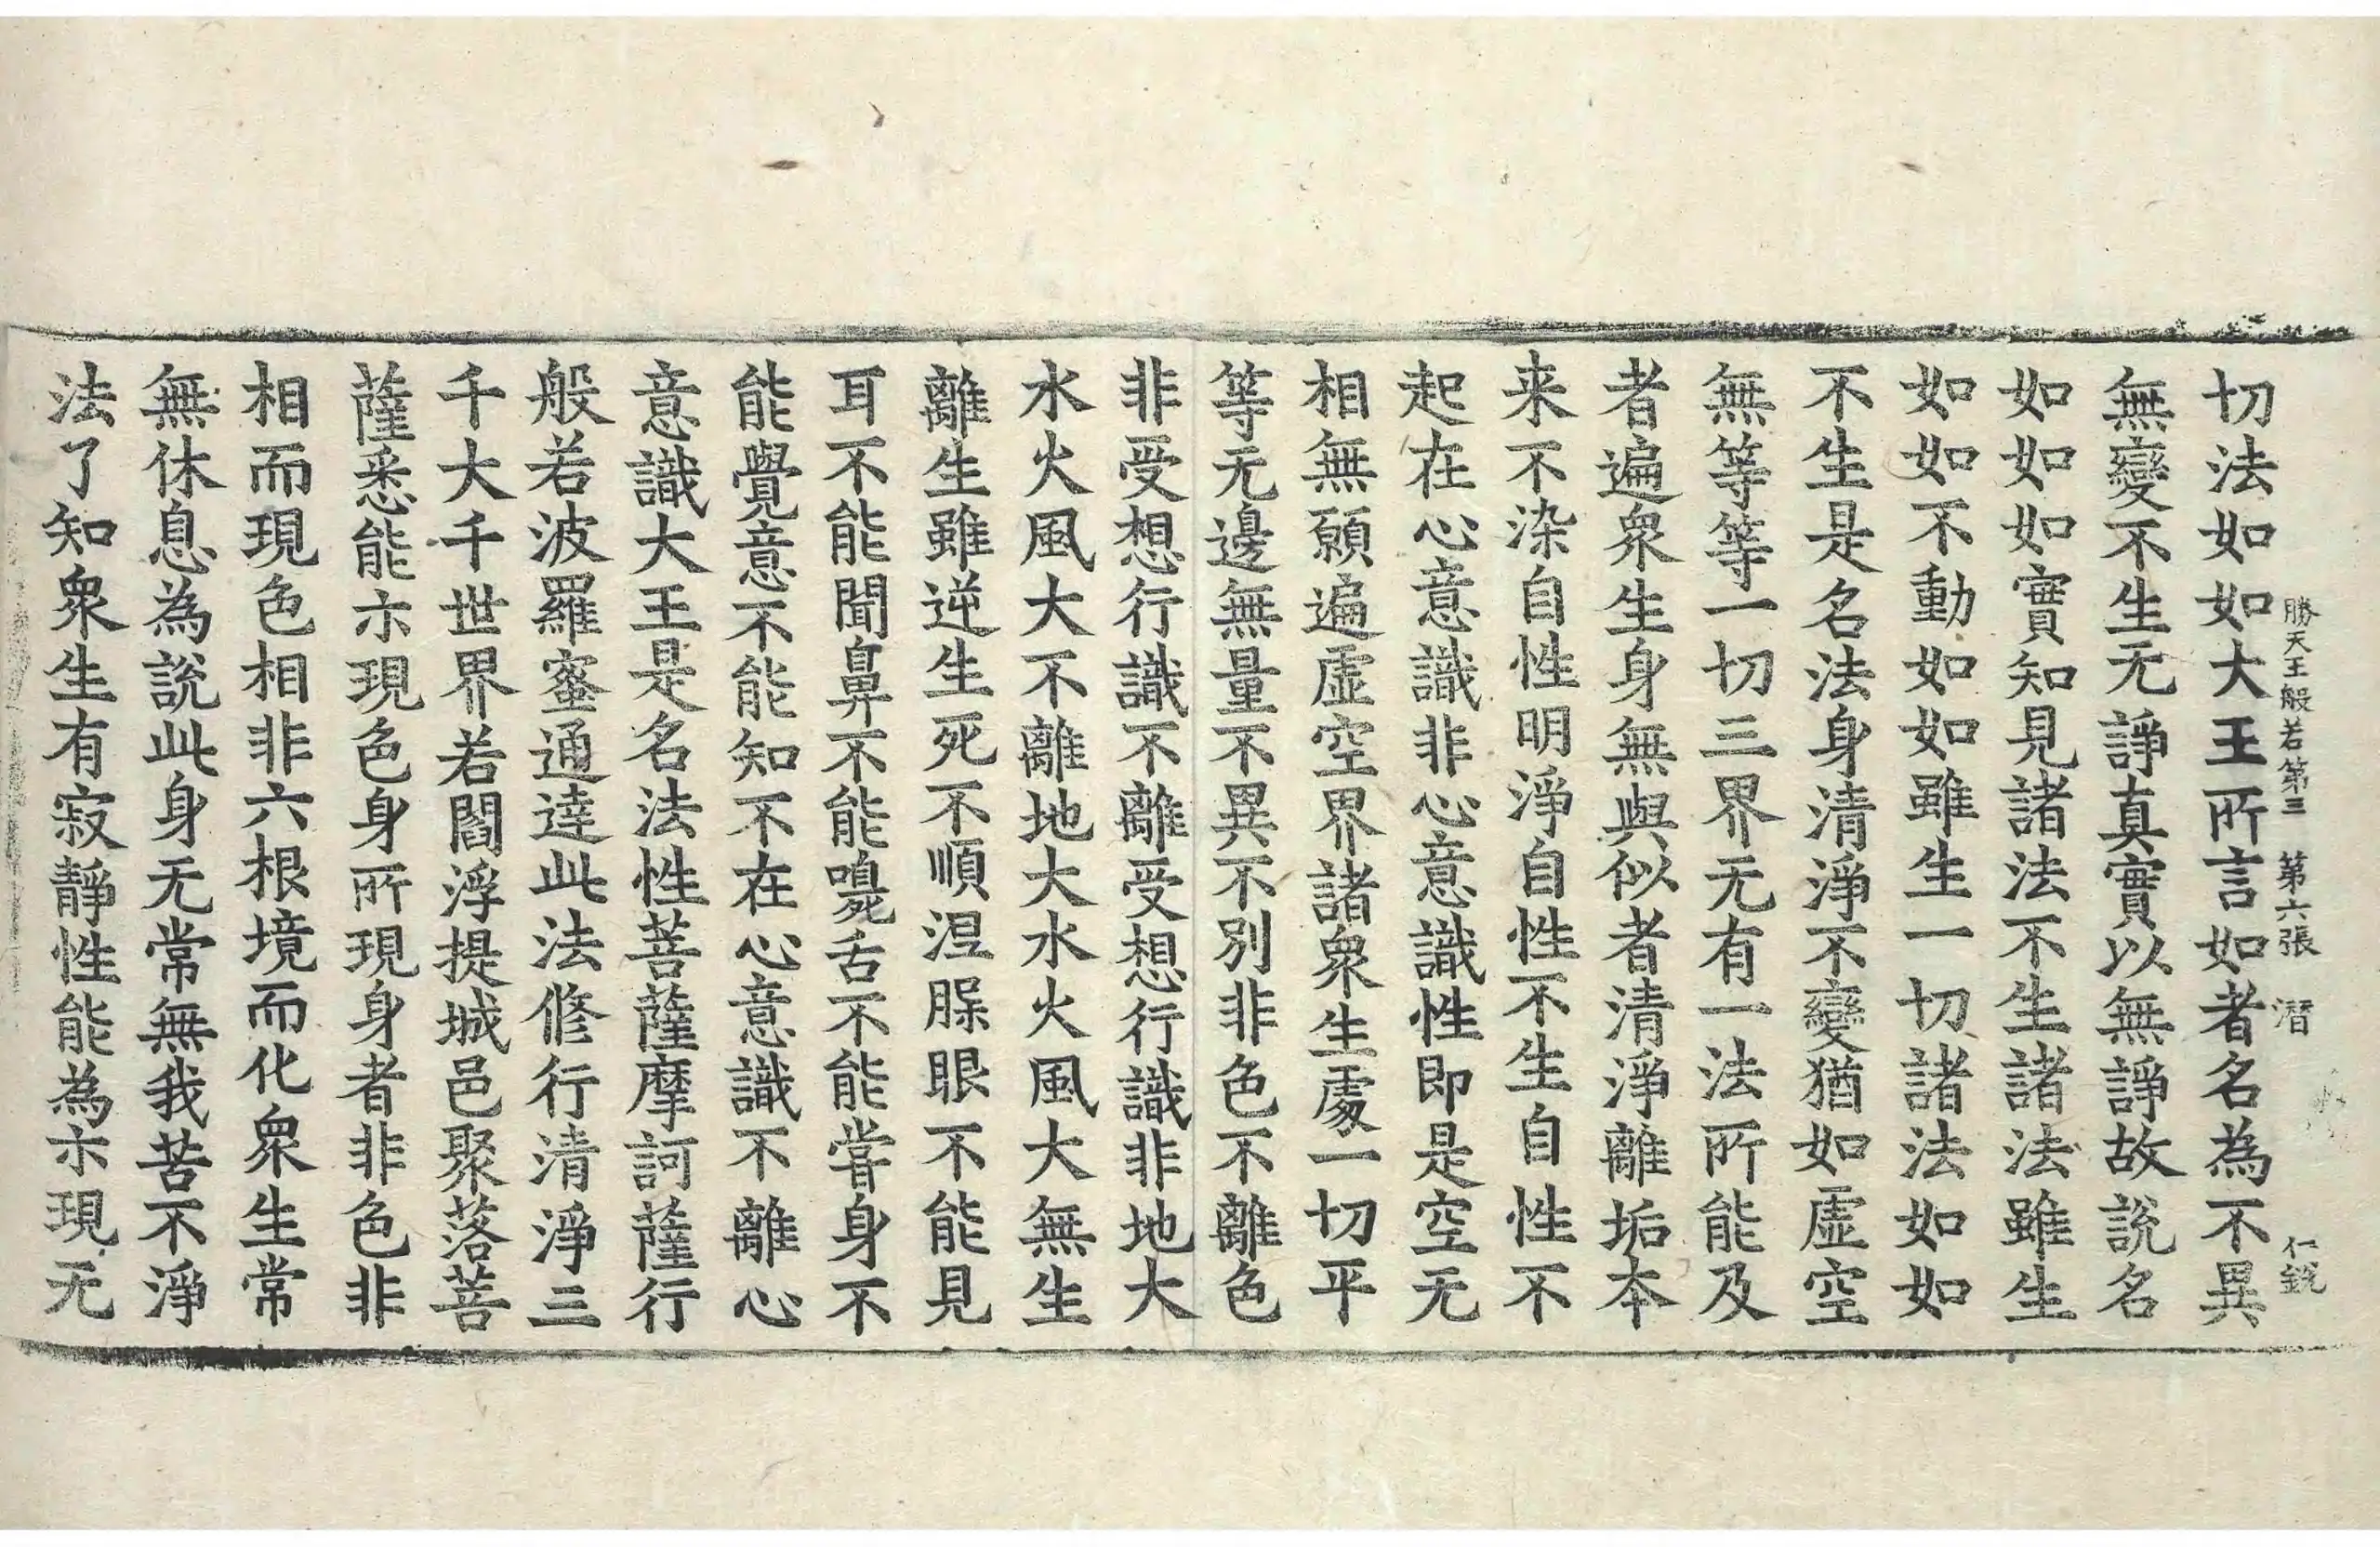 勝天王般若第三 第六張 潛 仁銳
切法如如大王所言如者名為不異
無變不生无諍真實以無諍故說名
如如如實知見諸法不生諸法雖生
如如不動如如雖生一切諸法如如
不生是名法身清淨不變猶如虛空
無等等一切三界无有一法所能及
者遍衆生身無與似者清淨離垢本
来不染自性明淨自性不生自性不
起在心意識非心意識性即是空无
相無願遍虛空界諸衆生處一切平
等无邊無量不異不別非色不離色
非受想行識不離受想行識非地大
水火風大不離地大水火風大無生
離生雖逆生死不順涅槃眼不能見
耳不能聞鼻不能嗅舌不能甞身不
能覺意不能知不在心意識不離心
意識大王是名法性菩薩摩訶薩行
般若波羅蜜通達此法修行清淨三
千大千世界若閻浮提城邑聚落菩
薩悉能示現色身所現身者非色非
相而現色相非六根境而化衆生常
無休息為說此身无常無我苦不淨
法了知衆生有寂靜性能為示現无